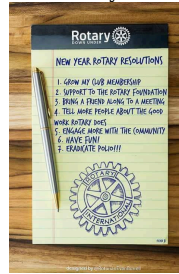 Rotary
DOWN UNDER
NEW YEAR ROTARY RESOLUTIONS
1. GROW MY CLUB MEMBERSHIP
2. SUPPORT TO THE ROTARY FOUNDATION
3. BRING A FRIEND ALONG TO A MEETING
4. TELL MORE PEOPLE ABOUT THE GOOD
WORK ROTARY DOES
5. ENGAGE MORE WITH THE COMMUNITY
6. HAVE FUN!
7. ERADICATE POLIO!!!
ROTARY
INTERNATIONAL